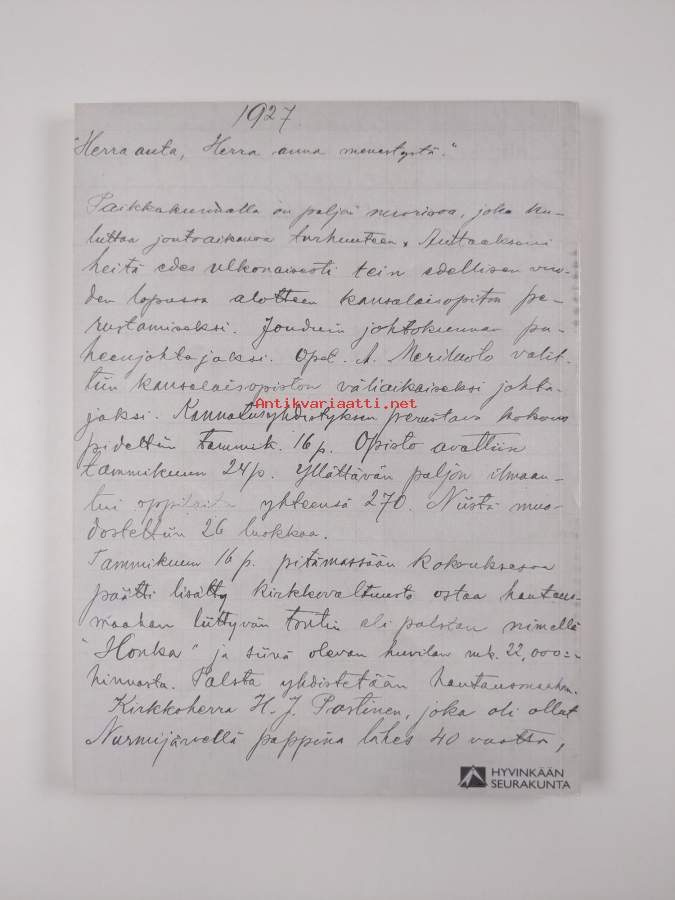 1927.
"Herra auta, Herra anna menestystä."
Paikkakunnalla on paljon nuorisoa, joka ku-
luttaa joutoaikansa turhuuteen. Auttaakseni
heitä edes ulkonaisesti tein edellisen vuo-
den lopussa alotteen kansalaisopiston pe-
rustamiseksi. Jouduin johtokunnan pu-
heenjohtajaksi. Opet. A. Meriluoto valit-
tiin kansalaisopiston väliaikaiseksi johta-
jaksi. Kannatusyhdistyksen perustava kokous
Antikvariaatti.net
pidettiin tammik. 16 p. Opisto avattiin
tammikuun 24 p. Yllättävän paljon ilmaan-
tui oppilaita yhteensä 270. Niistä muo-
dostettiin 26 luokkaa.
Tammikuun 16 p. pitämässään kokouksessa
päätti lisätty kirkkovaltuusto ostaa hautaus-
maahan liittyvän tontin eli palstan nimeltä
"Honka" ja siinä olevan huvilan mk. 22,000:-
hinnasta. Palsta yhdistetään hautausmaahan.
Kirkkoherra H. J. Pastinen, joka oli ollut
Nurmijärvellä pappina lähes 40 vuotta,
HYVINKÄÄN
SEURAKUNTA